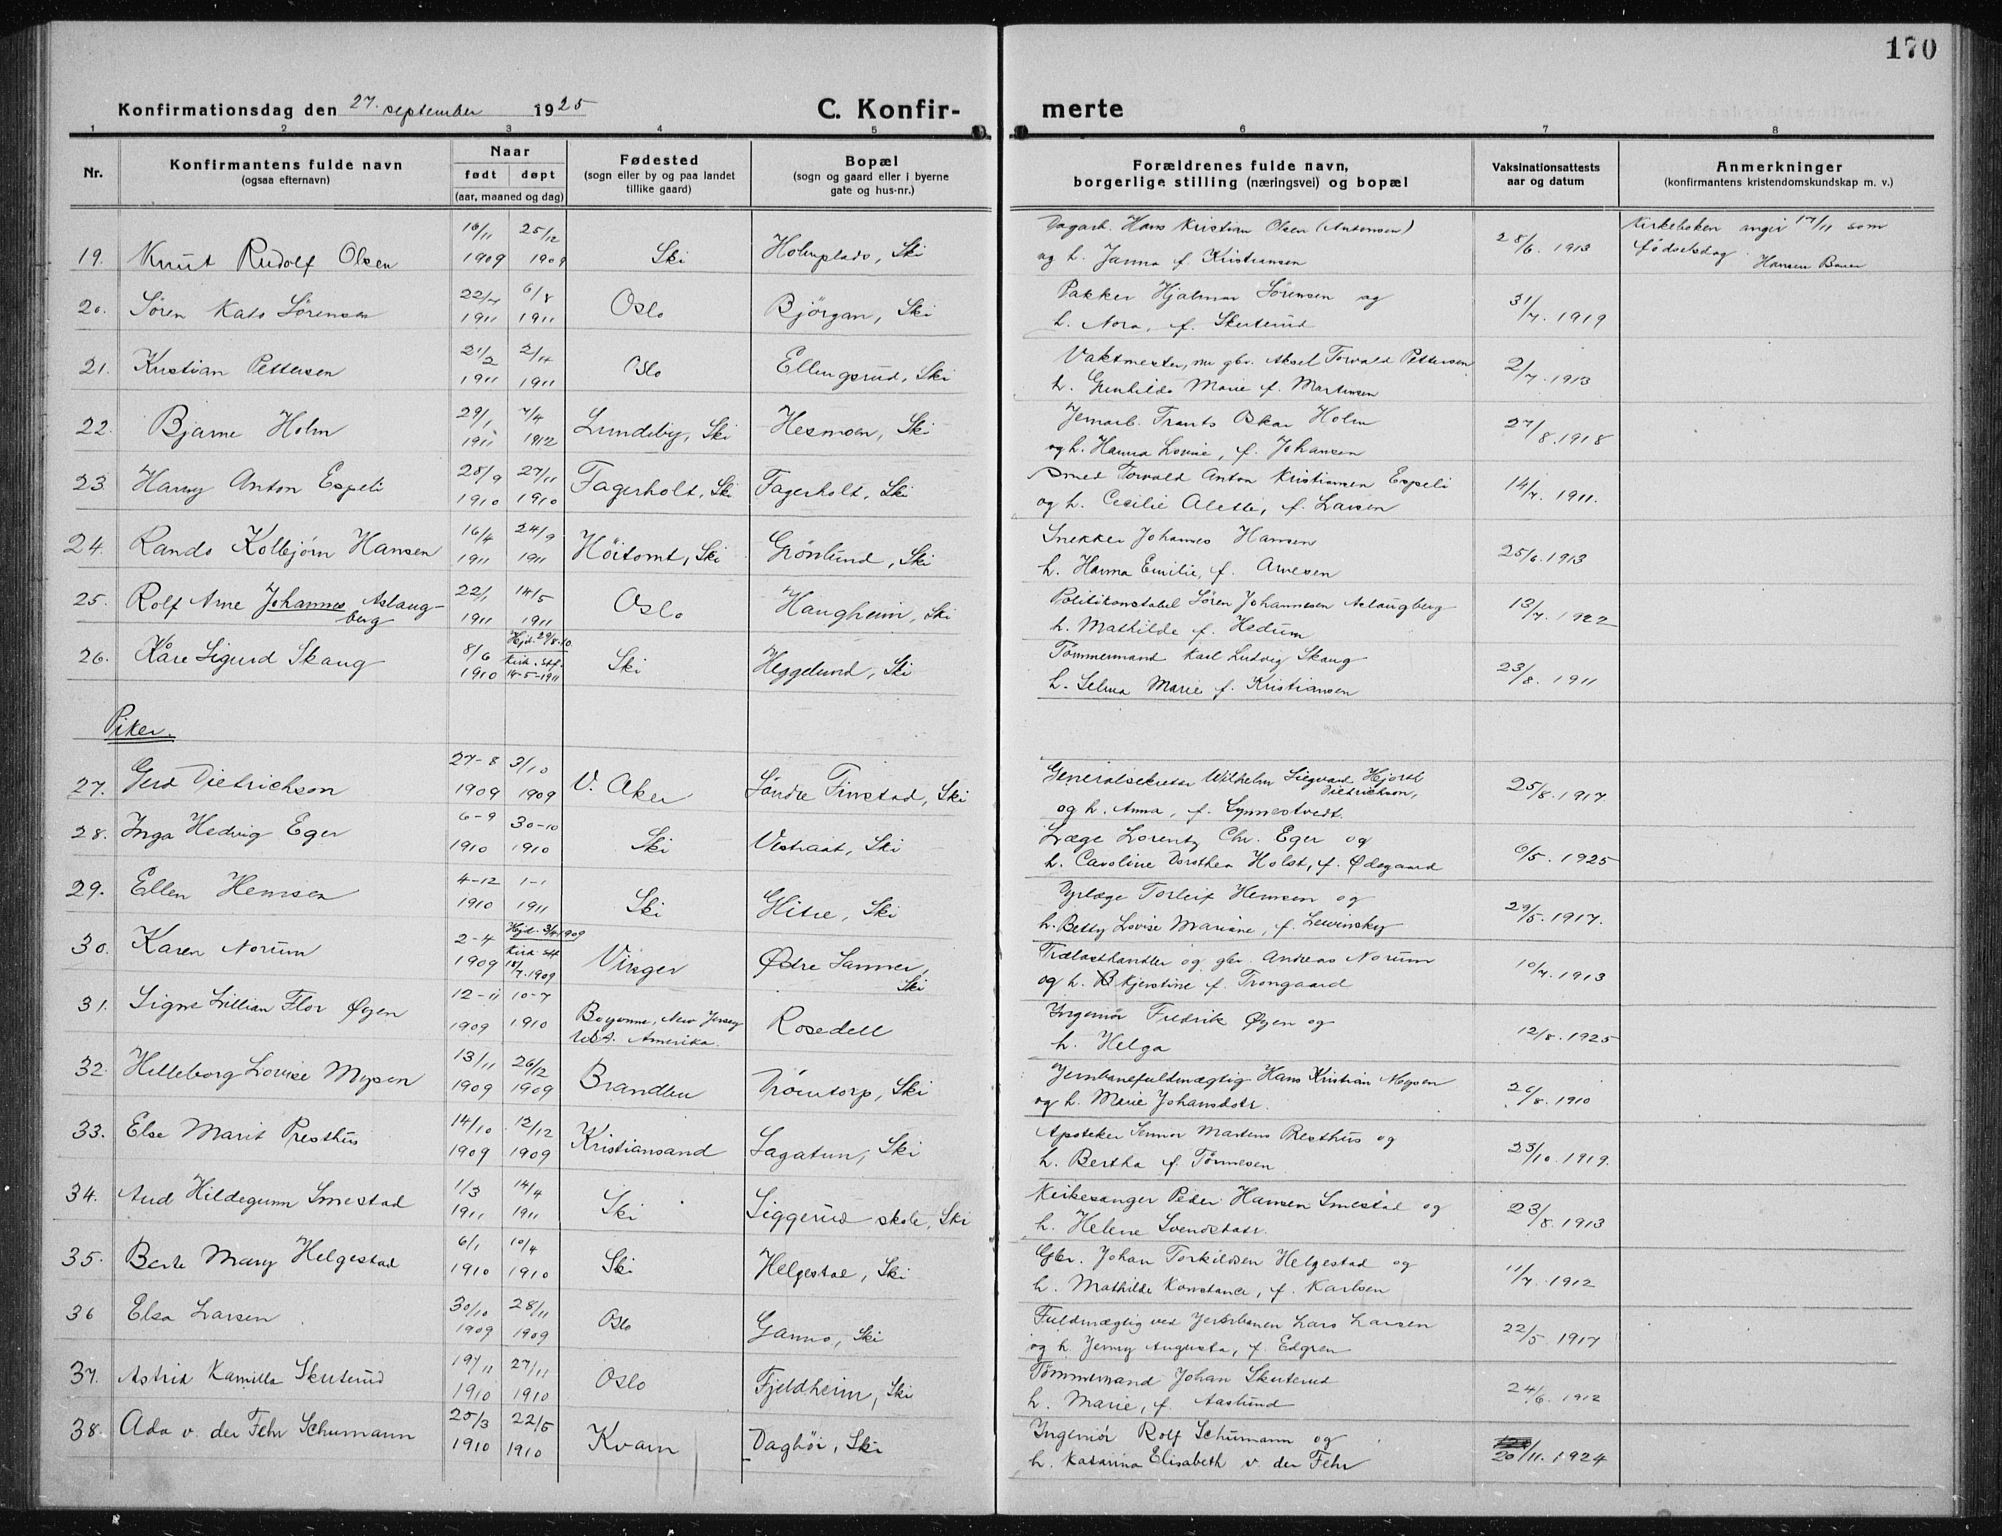 170
Konfirmationsdag den 27. september 1925
C. Konfir-
merte
1 2 3 4 5 6 7 8
Nr.
Konfirmantens fulde navn
(ogsaa efternavn)
Naar
født døpt
(aar, maaned og dag)
Fødested
(sogn eller by og paa landet
tillike gaard)
Bopæl
(sogn og gaard eller i byerne
gate og hus-nr.)
Forældrenes fulde navn,
borgerlige stilling (næringsvei) og bopæl
Vaksinationsattests
aar og datum
Anmerkninger
(konfirmantens kristendomskundskap m. v.)
16/11 25/12 Dagarb. Hans Kristian Olsen (Antonsen) Kirkeboken angir 17/11 som
19. Knut Rudolf Olsen 1909 1909 Ski Holmplads, Ski og h. Janna f. Kristiansen 28/6. 1913 fødselsdag.
Hansen Bauer
22/7 6/8 Pakker Hjalmar Sörensen og
20. Sören Kato Sörensen 1911 1911 Oslo Björgan, Ski h. Nora, f. Skuterud 31/7. 1919
21/2 2/4 Vaktmester, nu gbr. Aksel Torvald Pettersen
21. Kristian Pettersen 1911 1911 Oslo Ellingsrud, Ski h. Gunhilda Marie f. Martinsen 2/7. 1913
29/1 7/4 Jernarb. Frants Oskar Holm
22. Bjarne Holm 1911 1912 Lundeby, Ski Hesmoen, Ski og h. Hanna Lovise, f. Johansen 27/8. 1918
28/9 27/11 Smed Torvald Anton Kristiansen Espeli
23. Harry Anton Espeli 1910 1910 Fagerholt, Ski Fagerholt, Ski og h. Cecilie Alette, f. Larsen 14/7. 1911.
16/4 24/9 Snekker Johannes Hansen
24. Rando Kolbjörn Hansen 1911 1911 Höitomt, Ski Grönlund, Ski h. Hanna Emilie, f. Arnesen 25/6. 1913
22/1 14/5 Politikonstabel Sören Johannesen Aslaugberg
25. Rolf Arne Johannes Aslaug-
berg 1911 1911 Oslo Haugheim, Ski h. Mathilde f. Hedum 13/7. 1922
8/6 Hjd. 29/8-10 Tömmermand Karl Ludvig Skaug
26. Kåre Sigurd Skaug 1910 Kirk. stf. 14-5-1911 Ski Heggelund, Ski h. Selma Marie f. Kristiansen 23/8. 1911
Piker.
27-8 3/10 Generalsekretær Wilhelm Siegvard Hjorth
Dietrichson,
27. Gerd Dietrichson 1909 1909 V. Aker Søndre Finstad, Ski og h. Anna, f. Synnestvedt. 25/8. 1917.
6-9 30-10 Læge Lorentz Chr. Eger og
28. Inga Hedvig Eger 1910 1910 Ski Vestraat, Ski h. Caroline Dorothea Holst, f. Ødegaard 6/5. 1925
4-12 1-1 Dyrlæge Torleif Hemsen og
29. Ellen Hemsen 1910 1911 Ski Glitre, Ski h. Betty Lovise Mariane, f. Lewinsky 29/5. 1917.
2-4 Hjd. 3/4 1909 Trælasthandler og gbr. Andreas Norum
30. Karen Norum 1909 Kirk. stf. 18/7. 1909 Vinger Østre Sanner,
Ski og h. Kjerstine f. Trongaard 10/7. 1913
12-11 10-7 Ingeniør Fredrik Øyen og
31. Signe Lillian Flor Øyen 1909 1910 Bayonne, New Jersey
U.S.A. Amerika. Rosedell h. Helga 12/8. 1925
13/11 26/12 Jernbanefuldmægtig Hans Kristian Mysen
32. Hilleborg Lovise Mysen 1909 1909 Brandbu Drömtorp, Ski og h. Marie Johansdotr. 26/8. 1910
14/10 12/12 Apoteker Gunnar Martens Presthus og
33. Else Marit Presthus 1909 1909 Kristiansand Sagatun, Ski h. Bertha f. Tönnesen 23/10. 1919.
1/3 14/4 Kirkesanger Peder Hansen Smestad og
34. Aud Hildegunn Smestad 1911 1911 Ski Siggerud skole, Ski h. Helene Svendsdatr. 23/8. 1913
6/1 10/4 Gbr. Johan Torkildsen Helgestad og
35. Berte Mary Helgestad 1910 1910 Ski Helgestad, Ski h. Mathilde Konstance, f. Karlsen 11/7. 1912
30/10 28/11 Fuldmægtig ved Jernbanen Lars Larsen
36 Elsa Larsen 1909 1909 Oslo Ganno, Ski og h. Jenny Augusta, f. Edgren 22/5 1917
19/11 27/11 Tömmermand Johan Skuterud
37. Astrid Kamilla Skuterud 1910 1910 Oslo Fjeldheim, Ski h. Marie, f. Aaslund 24/6. 1912
25/3 22/5 Ingeniör Rolf Schumann og
38. Ada v. der Fehr Schumann 1910 1910 Kvam Dagbö, Ski h. Katarina Elisabeth v. der Fehr 20/11. 1924